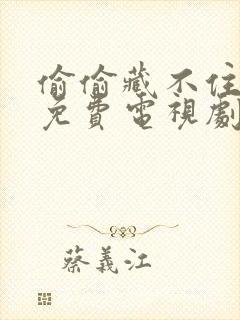 偷偷藏不住
免費電視劇
蔡義江